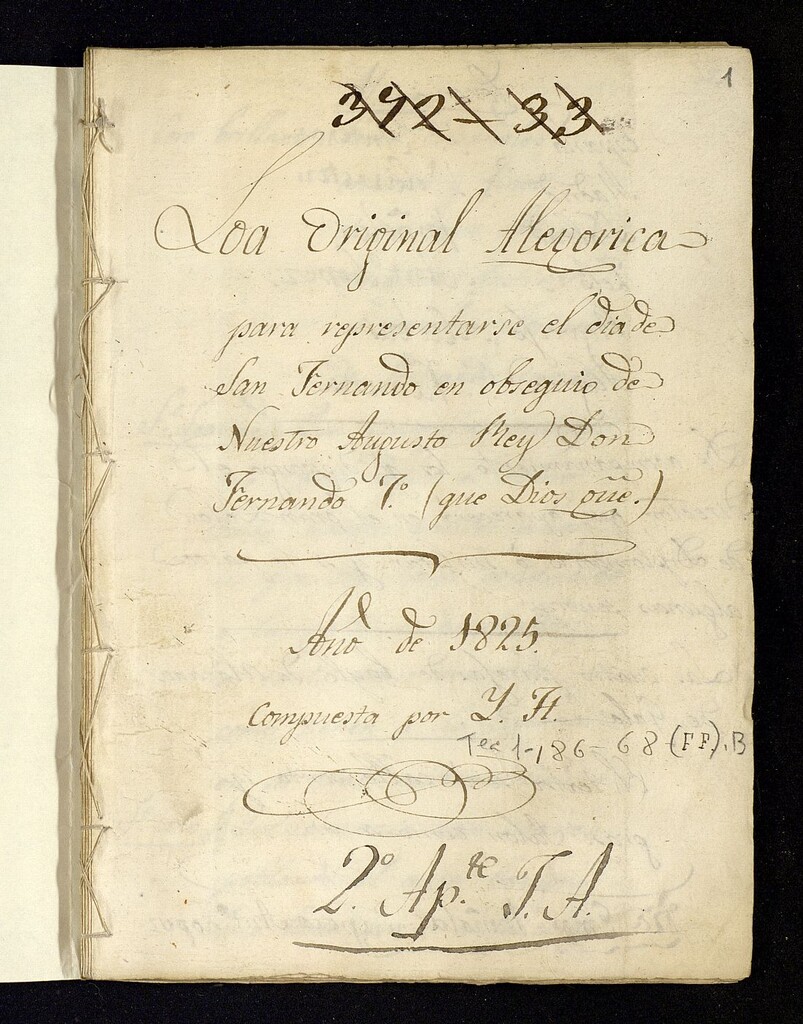 1
392-33
Loa Original Alegorica
para representarse el dia de
San Fernando en obsequio de
Nuestro Augusto Rey Don
Fernando 7.º (que Dios gũe.)
Año de 1825.
Compuesta por Y. H.
Tea 1-186-68 (FF), B
2.º Ap.te T. A.